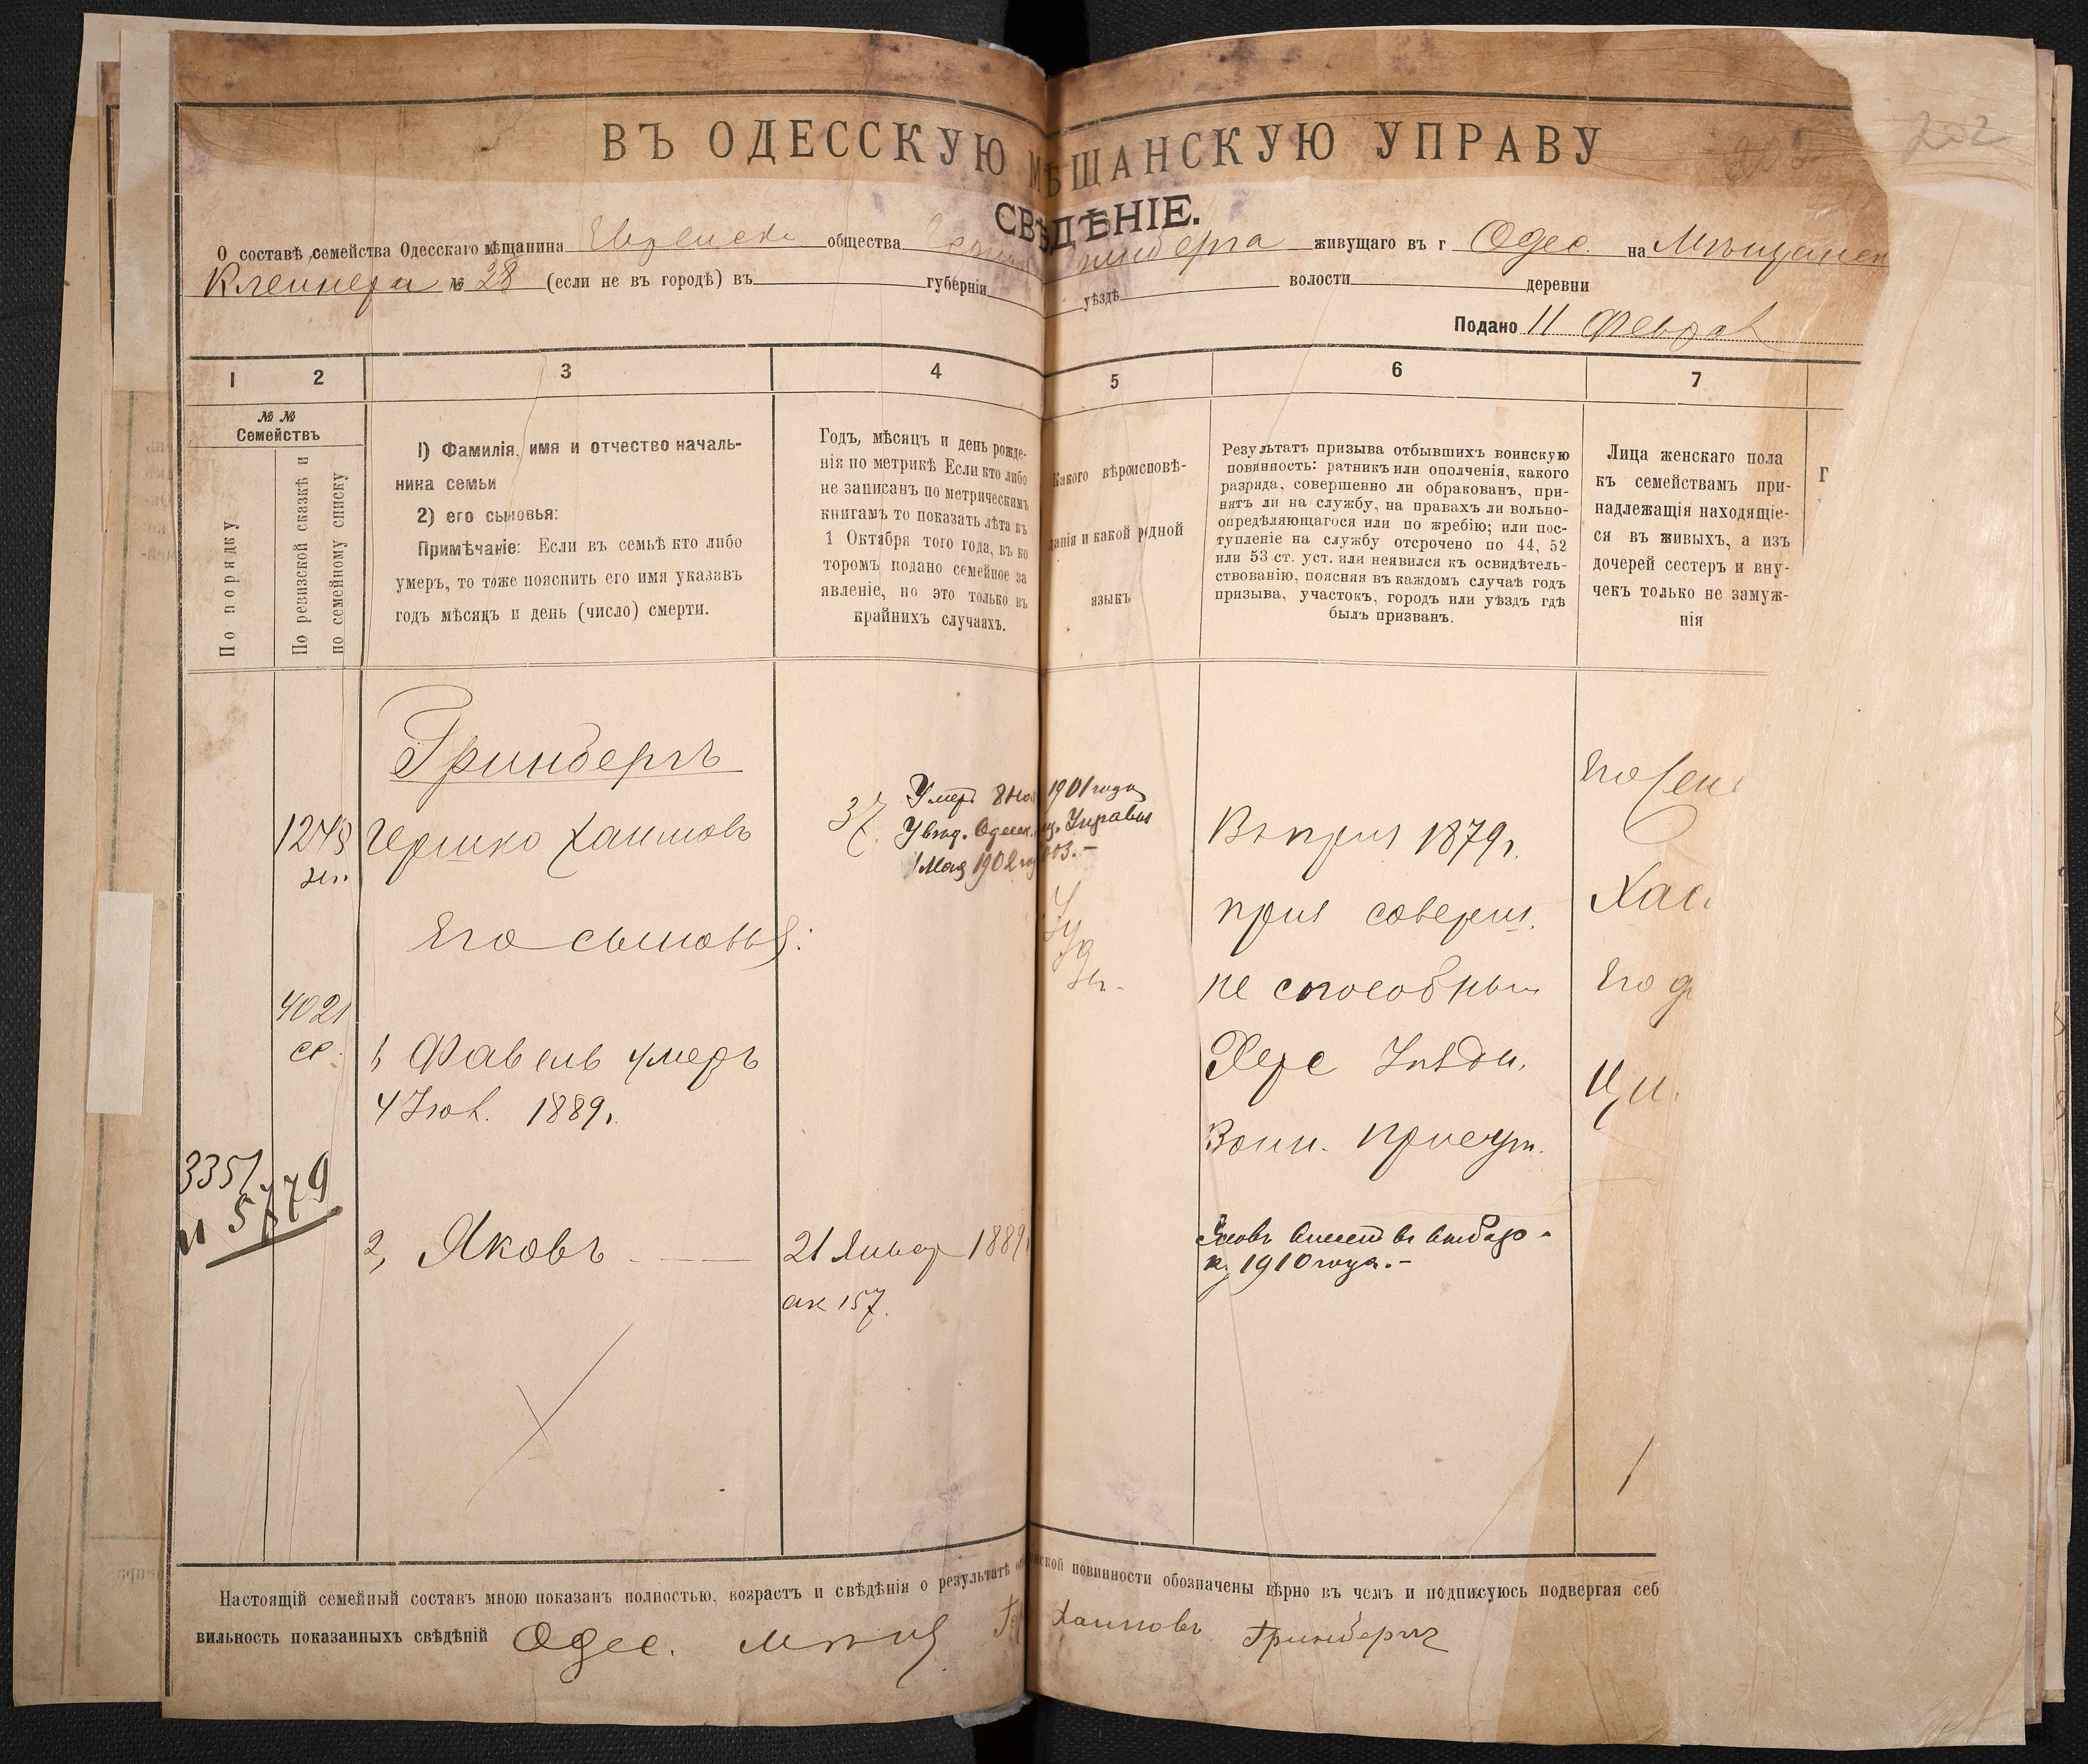 202
ВЪ ОДЕССКУЮ МѢЩАНСКУЮ УПРАВУ
СВѢДѢНІЕ.
О составѣ семейства Одесскаго мѣщанина Еврейск общества живущаго въ г Одес. на Мѣщанск
Клейнера № 28 (если не въ городѣ) въ губерніи уѣздѣ волости деревни
Подано 11 Феврал
1 2 3 4 5 6 7
№ №
Семействъ
По порядку
По ревизской сказкѣ и
по семейному списку
1) Фамилія, имя и отчество началь-
ника семьи
2) его сыновья:
Примѣчаніе: Если въ семьѣ кто либо
умеръ, то тоже пояснить его имя указавъ
годъ мѣсяцъ и день (число) смерти.
Годъ, мѣсяцъ и день рожде-
нія по метрикѣ Если кто либо
не записанъ по метрическимъ
книгамъ то показать лѣта къ
1 Октября того года, въ ко
торомъ подано семейное за
явленіе, но это только въ
крайнихъ случаяхъ.
Какого вѣроисповѣ-
данія и какой родной
языкъ
Результатъ призыва отбывшихъ воинскую
повинность: ратникъ или ополченія, какого
разряда, совершенно ли обракованъ, при-
нятъ ли на службу, на правахъ ли вольно-
опредѣляющагося или по жребію; или пос-
тупленіе на службу отсрочено по 44, 52
или 53 ст. уст. или неявился къ освидѣтель-
ствованію, поясняя въ каждомъ случаѣ годъ
призыва, участокъ, городъ или уѣздъ гдѣ
былъ призванъ.
Лица женскаго пола
къ семействамъ при-
надлежащія находящіе-
ся въ живыхъ, а изъ
дочерей сестеръ и вну-
чекъ только не замуж-
нія
Гринбергъ
Гершко Хаимовъ
37.
Умеръ 8 Ноя 1901 года
Увѣд. Одесск. мѣщ. Управы
1 Мая 1902
Іуд
Въ приз 1879 г.
приз соверш.
не способным
Херс Уѣздн.
Воин. присут.
Его сыновья:
4021
1, Файвель умеръ
4 Іюл. 1889 г.
3351
и 5779
2, Яковъ
21 Январ 1889
ак 157.
Яковъ внесен въ
1910 года.-
Настоящій семейный составъ мною показанъ полностью, возрастъ и свѣдѣнія о результатѣ повинности обозначены вѣрно въ чемъ и подписуюсь подвергая себ
вильность показанныхъ свѣдѣній Одес. мѣщ Гер Хаимовъ Гринбергъ